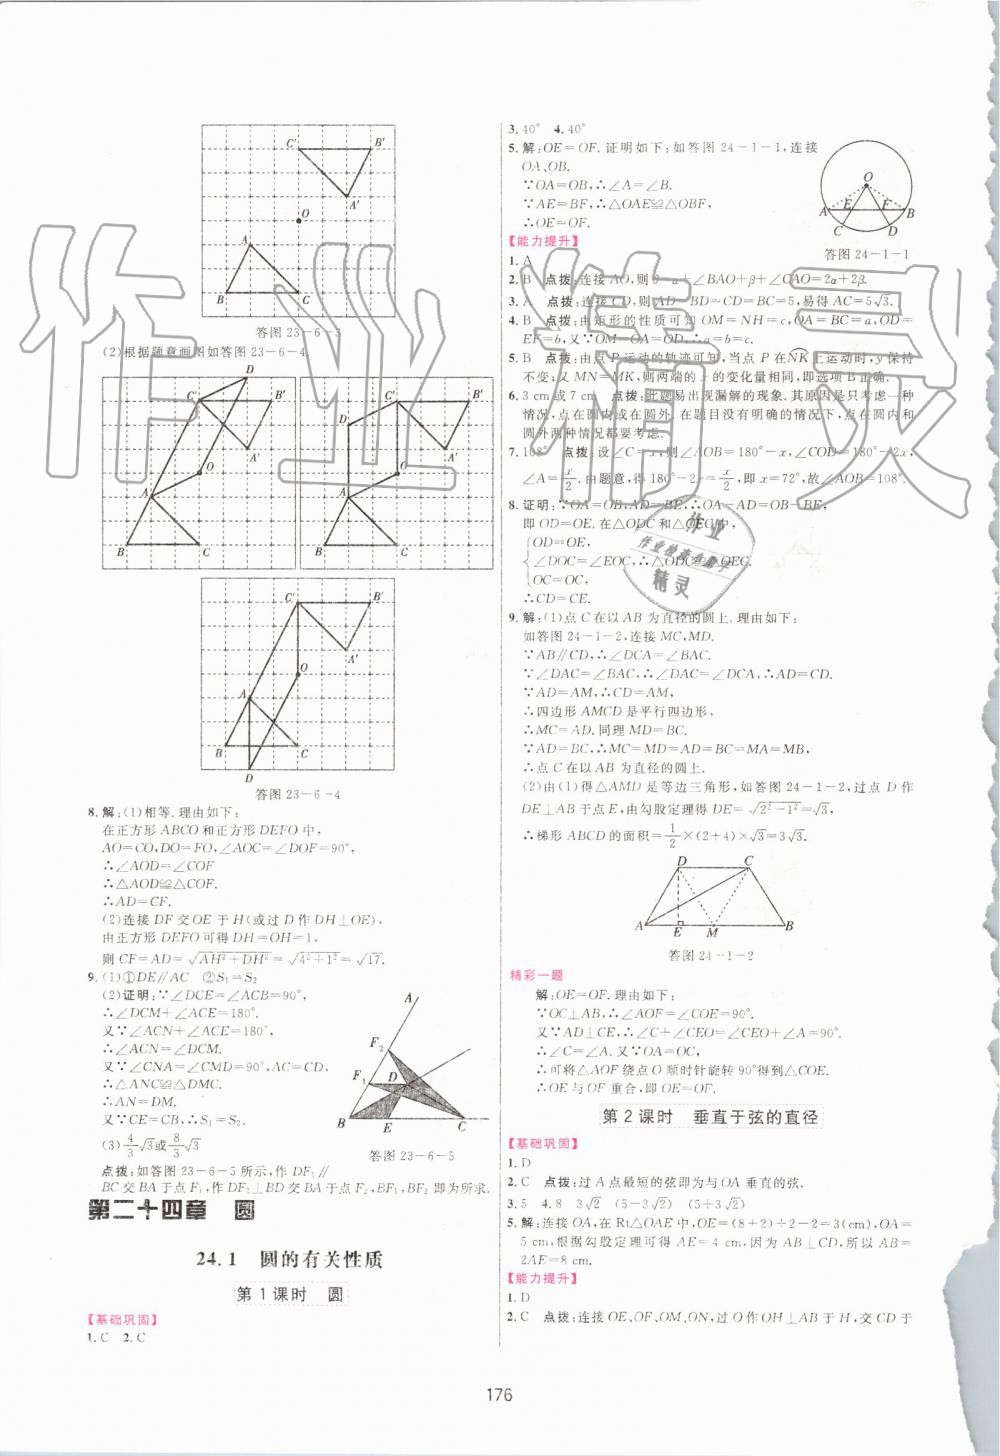 C′ B′
A′
O
A
B C
答图 23-6-3
(2)根据题意画图如答图 23-6-4
D
C′ B′
A′
O
A
B C
C′ B′
D
A′
O
A
B C
C′ B′
A′
O
A
B C
D
答图 23-6-4
8.解:(1)相等.理由如下:
在正方形 ABCO 和正方形 DEFO 中,
AO=CO,DO=FO,∠AOC=∠DOF=90°,
∴∠AOD=∠COF
∴△AOD≌△COF.
∴AD=CF.
(2)连接 DF 交 OE 于 H(或过 D 作 DH⊥OE),
由正方形 DEFO 可得 DH=OH=1,
则 CF=AD=√(AH²+DH²)=√(4²+1²)=√17.
9.(1)①DE∥AC ②S₁=S₂
(2)证明:∵∠DCE=∠ACB=90°,
∴∠DCM+∠ACE=180°.
又∵∠ACN+∠ACE=180°,
∴∠ACN=∠DCM.
又∵∠CNA=∠CMD=90°,AC=CD,
∴△ANC≌△DMC.
∴AN=DM.
又∵CE=CB,∴S₁=S₂.
(3)4/3√3或8/3√3
A
F₂
F₁ D
B E C
答图 23-6-5
点拨:如答图 23-6-5 所示,作 DF₁∥
BC 交 BA 于点 F₁,作 DF₂⊥BD 交 BA 于点 F₂,BF₁,BF₂ 即为所求.
第二十四章 圆
24.1 圆的有关性质
第 1 课时 圆
【基础巩固】
1.C 2.C
3.40° 4.40°
5.解:OE=OF.证明如下:如答图 24-1-1,连接
OA、OB.
∵OA=OB,∴∠A=∠B.
∵AE=BF,∴△OAE≌△OBF,
∴OE=OF.
O
A E F B
C D
答图 24-1-1
【能力提升】
1.A
2.B 点拨:连接 AO,则 θ=α+∠BAO+β+∠CAO=2α+2β.
3.A 点拨:连接 CD,则 AD=BD=CD=BC=5,易得 AC=5√3.
4.B 点拨:由矩形的性质可知 OM=NH=c,OA=BC=a,OD=
EF=b,又∵OM=OA=OD,∴a=b=c.
5.B 点拨:由点 P 运动的轨迹可知,当点 P 在NK上运动时,y 保持
不变;又 MN=MK,则两端的 的变化量相同,即选项 B 正确.
6.3 cm 或 7 cm 点拨:此题易出现漏解的现象.其原因是只考虑一种
情况,点在圆内或在圆外.在题目没有明确的情况下,点在圆内和
圆外两种情况都要考虑.
7.108° 点拨:设∠C=x,则∠AOB=180°-x,∠COD=180°-2x,
∠A=x/2.由题意,得 180°-2x=x/2,即 x=72°,故∠AOB=108°.
8.证明:∵OA=OB,AD=BE,∴OA-AD=OB-BE,
即 OD=OE.在△ODC 和△OEC 中,
{OD=OE,
∠DOC=∠EOC,∴△ODC≌△OEC.
OC=OC,
∴CD=CE.
9.解:(1)点 C 在以 AB 为直径的圆上.理由如下:
如答图 24-1-2,连接 MC,MD.
∵AB∥CD,∴∠DCA=∠BAC.
∵∠DAC=∠BAC,∴∠DAC=∠DCA,∴AD=CD.
∵AD=AM,∴CD=AM,
∴四边形 AMCD 是平行四边形,
∴MC=AD.同理 MD=BC.
∵AD=BC,∴MC=MD=AD=BC=MA=MB,
∴点 C 在以 AB 为直径的圆上.
(2)由(1)得△AMD 是等边三角形,如答图 24-1-2,过点 D 作
DE⊥AB 于点 E,由勾股定理得 DE=√(2²-1²)=√3,
∴梯形 ABCD 的面积=1/2×(2+4)×√3=3√3.
D C
A E M B
答图 24-1-2
精彩一题
解:OE=OF.理由如下:
∵OC⊥AB,∴∠AOF=∠COE=90°.
又∵AD⊥CE,∴∠C+∠CEO=∠CEO+∠A=90°.
∴∠C=∠A.又∵OA=OC,
∴可将△AOF 绕点 O 顺时针旋转 90°得到△COE.
∴OE 与 OF 重合,即 OE=OF.
第 2 课时 垂直于弦的直径
【基础巩固】
1.D
2.C 点拨:过点 A 最短的弦即为与 OA 垂直的弦.
3.5 4.8 3√2 (5-3√2) (5+3√2)
5.解:连接 OA,在 Rt△OAE 中,OE=(8+2)÷2-2=3(cm),OA=
5 cm,根据勾股定理可得 AE=4 cm,因为 AB⊥CD,所以 AB=
2AE=8 cm.
【能力提升】
1.D
2.C 点拨:连接 OE,OF,OM,ON,过 O 作 OH⊥AB 于 H,交 CD 于
176
作业精灵
作业
作业检查小助手
精灵